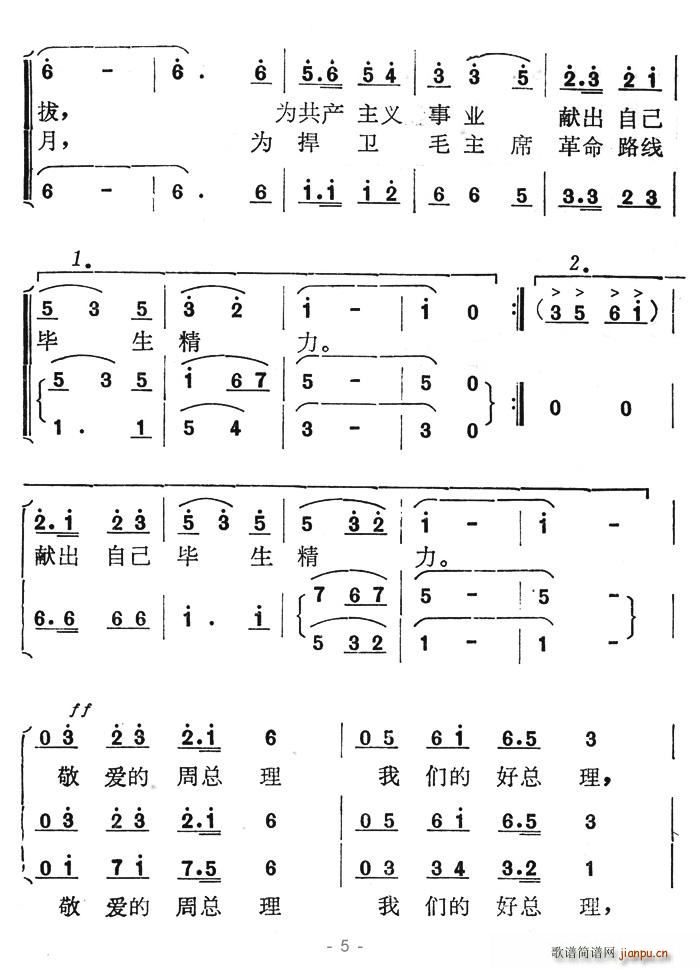 6 - 6 . 6 5.6 5 4 3 3 5 2.3 2 1
拔， 为共产 主义 事业 献出 自己
月， 为 捍 卫 毛主 席 革命 路线
6 - 6 . 6 1.1 1 2 6 6 5 3.3 2 3
1. 2.
5 3 5 3 2 1 - 1 0 ( 3 5 6 1 )
毕 生 精 力。
5 3 5 1 6 7 5 - 5 0
1 . 1 5 4 3 - 3 0 0 0
2.1 2 3 5 3 5 5 3 2 1 - 1 -
献出 自己 毕 生 精 力。
6.6 6 6 1 . 1 7 6 7 5 - 5 -
5 3 2 1 - 1 -
ff
0 3 2 3 2.1 6 0 5 6 1 6.5 3
敬 爱的 周总 理 我 们的 好总 理，
0 3 2 3 2.1 6 0 5 6 1 6.5 3
0 1 7 1 7.5 6 0 3 3 4 3.2 1
敬 爱的 周总 理 我 们的 好总 理，
- 5 -
歌谱简谱网
jianpu.cn